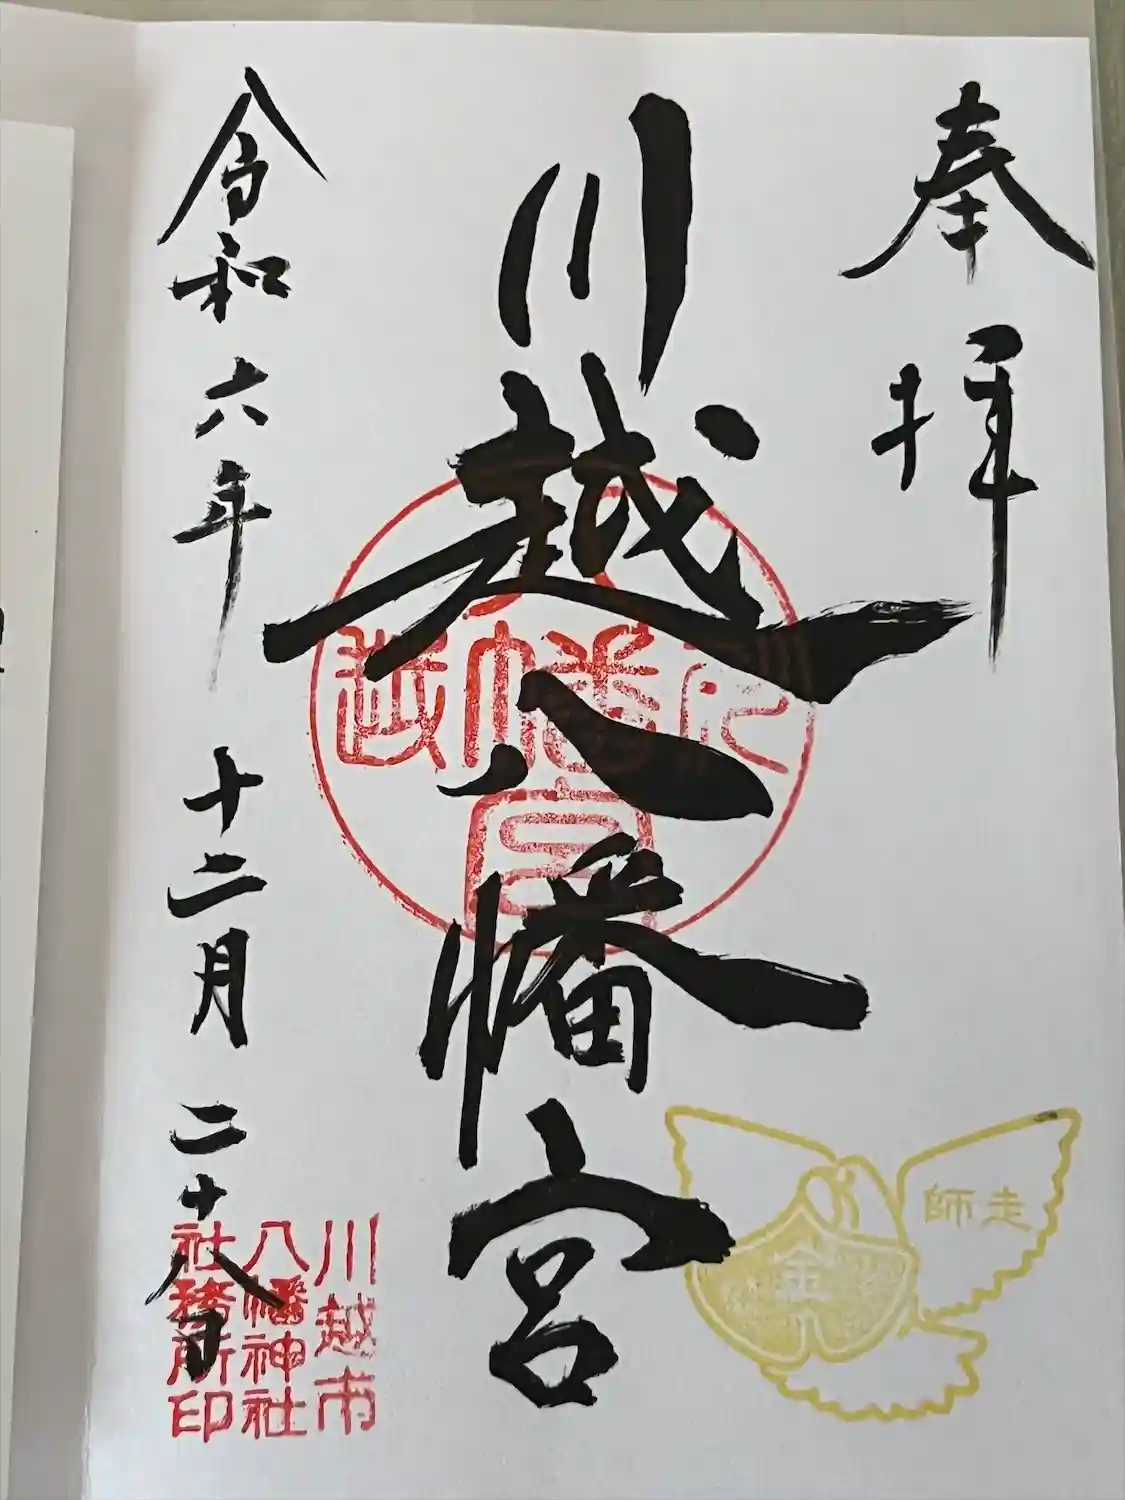 奉拝
川越八幡宮
令和六年十二月二十八日
川越
八幡宮
師走
金
川越市
八幡神社
社務所印